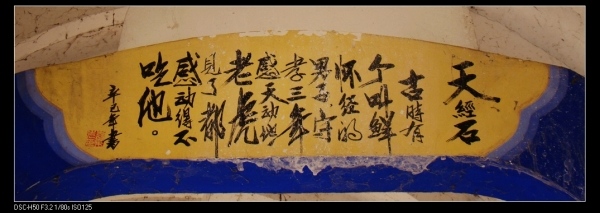 天經石
古時有
个叫鲜
怀经的
男子守
孝三年
感天动地
老虎
見了都
感动得不
吃他。
辛巳年書
DSC-H50 F3.2 1/80s ISO125